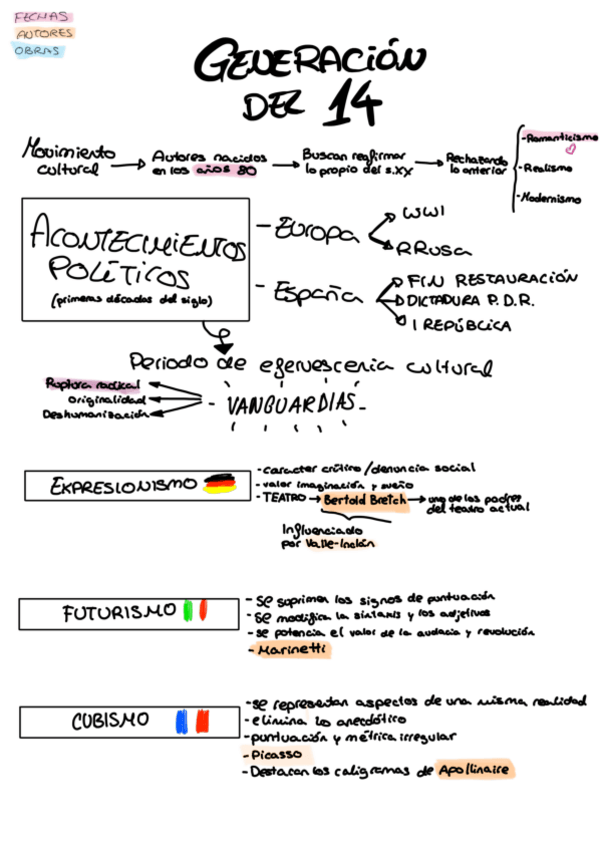 FECHAS
AUTORES
OBRAS
GENERACIÓN
DEL 14
Movimiento cultural → Autores nacidos en los años 80 → Buscan reafirmar lo propio del s.XX → Rechazando lo anterior
-Romanticismo
-Realismo
-Modernismo
ACONTECIMIENTOS
POLÍTICOS
(primeras décadas del siglo)
- Europa
WWI
RRusa
- España
FIN RESTAURACIÓN
DICTADURA P.D.R.
I REPÚBLICA
Periodo de efervescencia cultural
- VANGUARDIAS -
Ruptura radical
Originalidad
Deshumanización
EXPRESIONISMO
- caracter crítico/denuncia social
- valor imaginación y sueño
- TEATRO → Bertold Bretch → uno de los padres
del teatro actual
Influenciado
por Valle-Inclán
FUTURISMO
- se suprimen los signos de puntuación
- se modifica la sintaxis y los adjetivos
- se potencia el valor de la audacia y revolución
- Marinetti
CUBISMO
- se representan aspectos de una misma realidad
- elimina lo anecdótico
- puntuación y métrica irregular
- Picasso
- Destacan los caligramas de Apollinaire